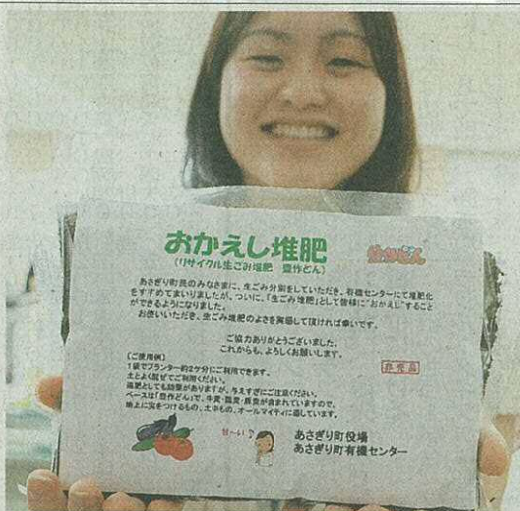 おかえし堆肥
(リサイクル生ごみ堆肥 豊作どん)
あさぎり町民のみなさまに、生ごみ分別をしていただき、有機センターにて堆肥化
をすすめてまいりましたが、ついに、「生ごみ堆肥」として皆様に"おかえし"すること
ができるようになりました。
お使いいただき、生ごみ堆肥のよさを実感して頂ければ幸いです。
ご協力ありがとうございました。
これからも、よろしくお願いします。
【ご使用例】
1袋でプランター約2ケ分にご利用できます。
土とよく混ぜてご利用ください。
追肥としても効果がありますが、与えすぎにご注意ください。
ベースは「豊作どん」で、牛糞・鶏糞・豚糞が含まれていますので、
地上に実をつけるもの、土ものもの、オールマイティに適しています。
非売品
甘〜い♪
あさぎり町役場
あさぎり町有機センター